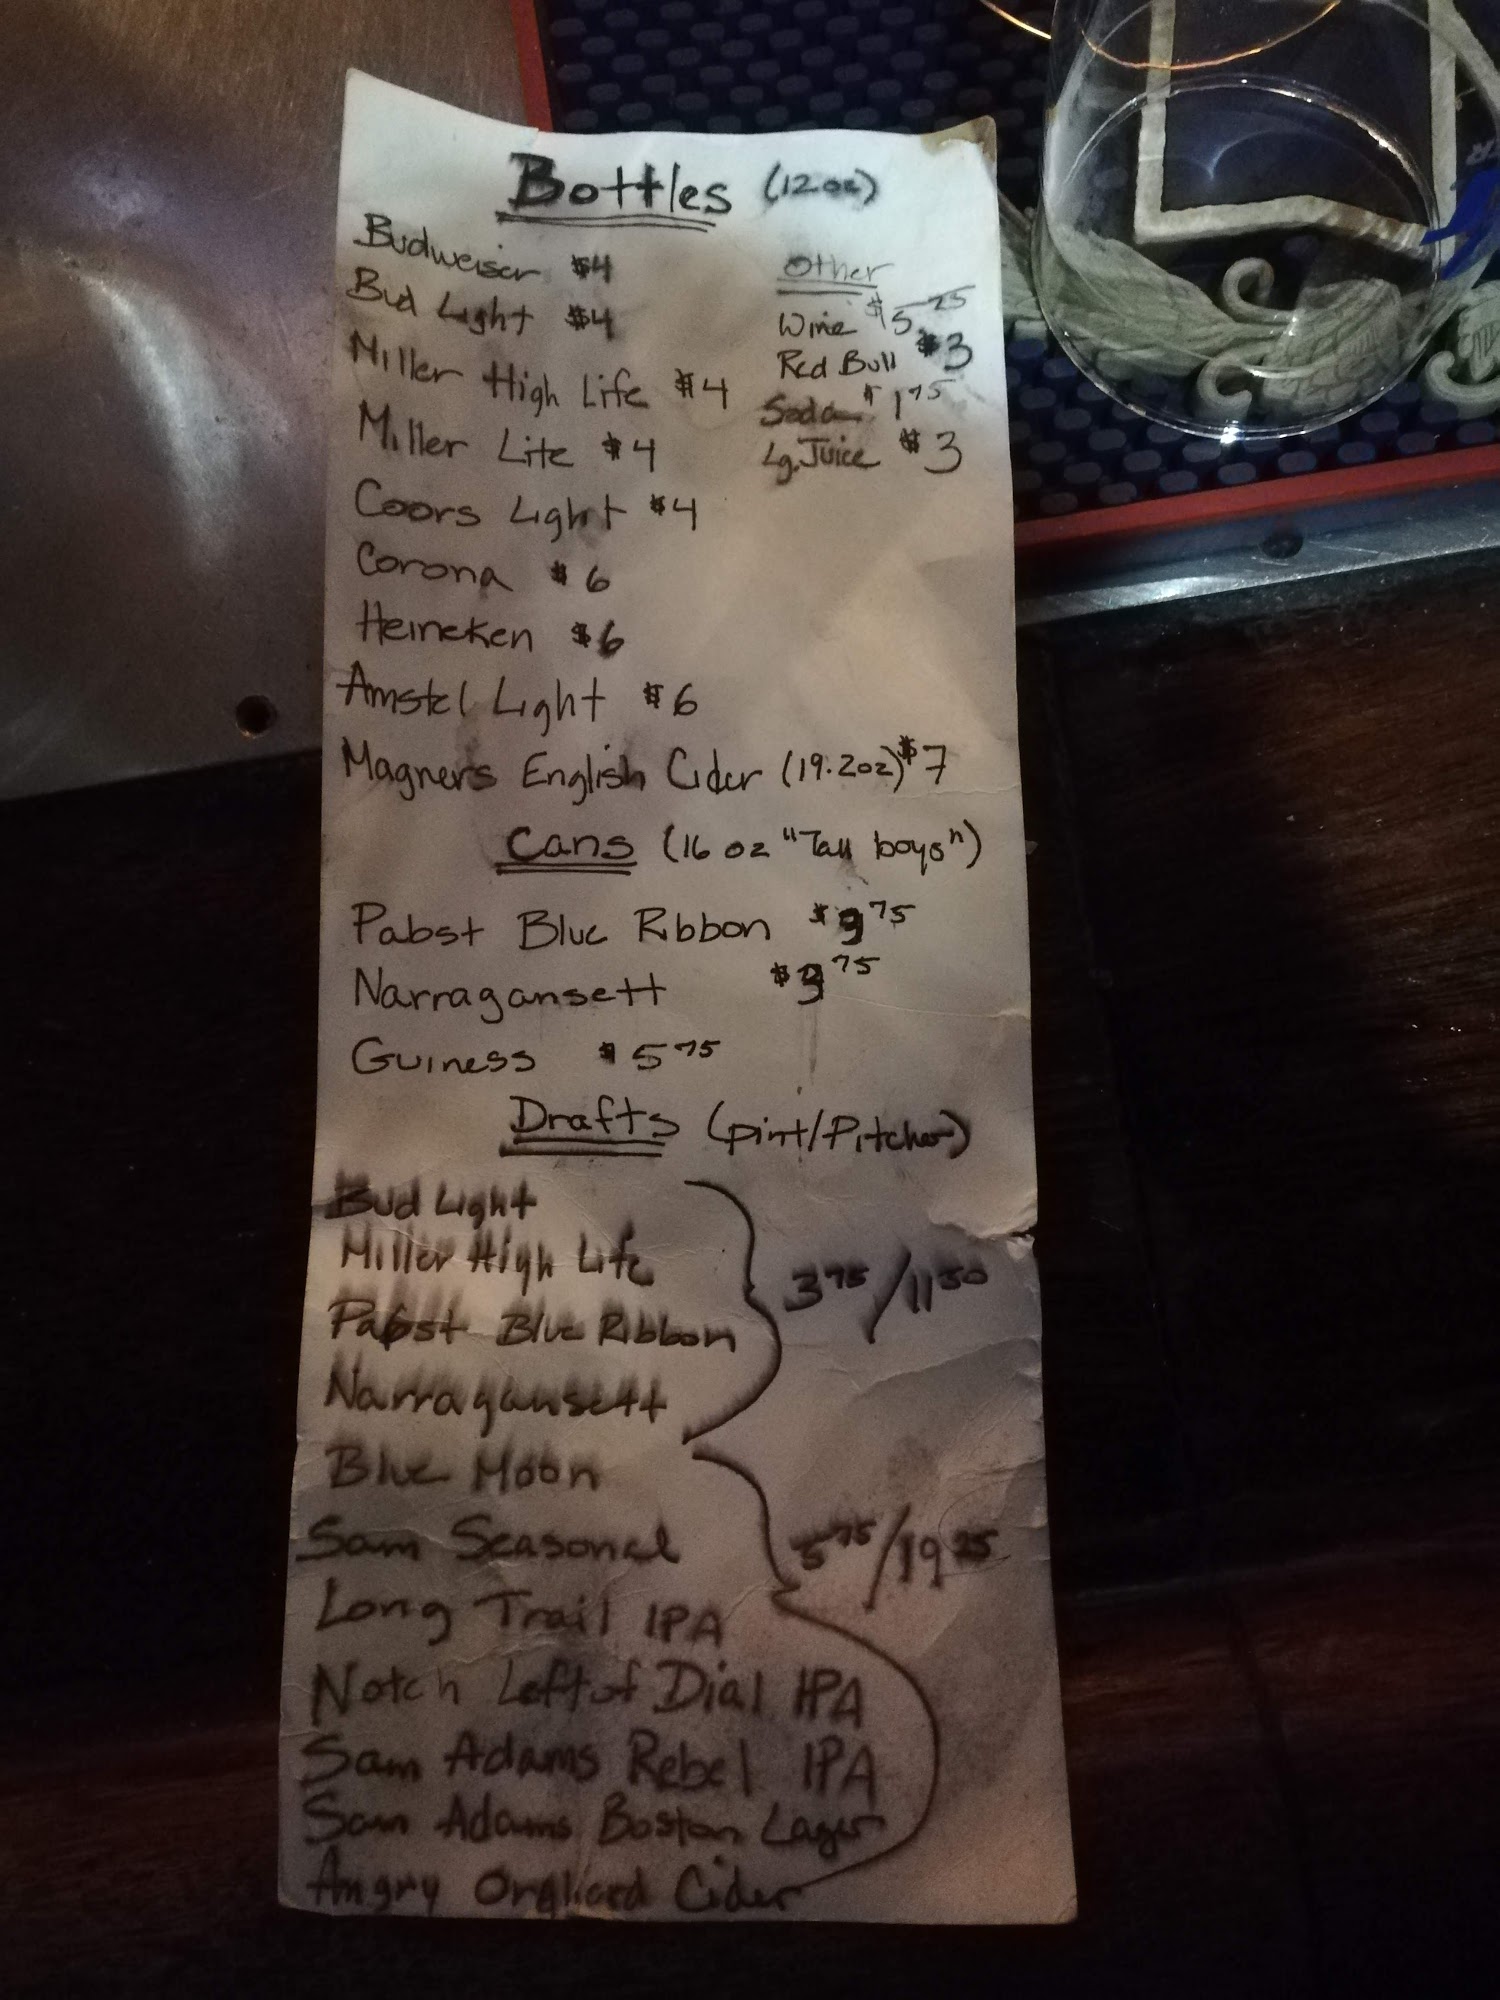 Bottles (12oz)
Budweiser $4
Bud Light $4
Miller High Life $4
Miller Lite $4
Coors Light $4
Corona $6
Heineken $6
Amstel Light $6
Magners English Cider (19.2oz) $7
Other
Wine $5 75
Red Bull $3
Soda $1 75
Lg. Juice $3
Cans (16 oz "Tall boys")
Pabst Blue Ribbon $3 75
Narragansett $3 75
Guiness $5 75
Drafts (pint/Pitcher)
Bud Light
Miller High Life
Pabst Blue Ribbon
Narragansett
3 75/11 50
Blue Moon
Sam Seasonal
Long Trail IPA
Notch Left of Dial IPA
Sam Adams Rebel IPA
Sam Adams Boston Lager
Angry Orchard Cider
5 75/19 25